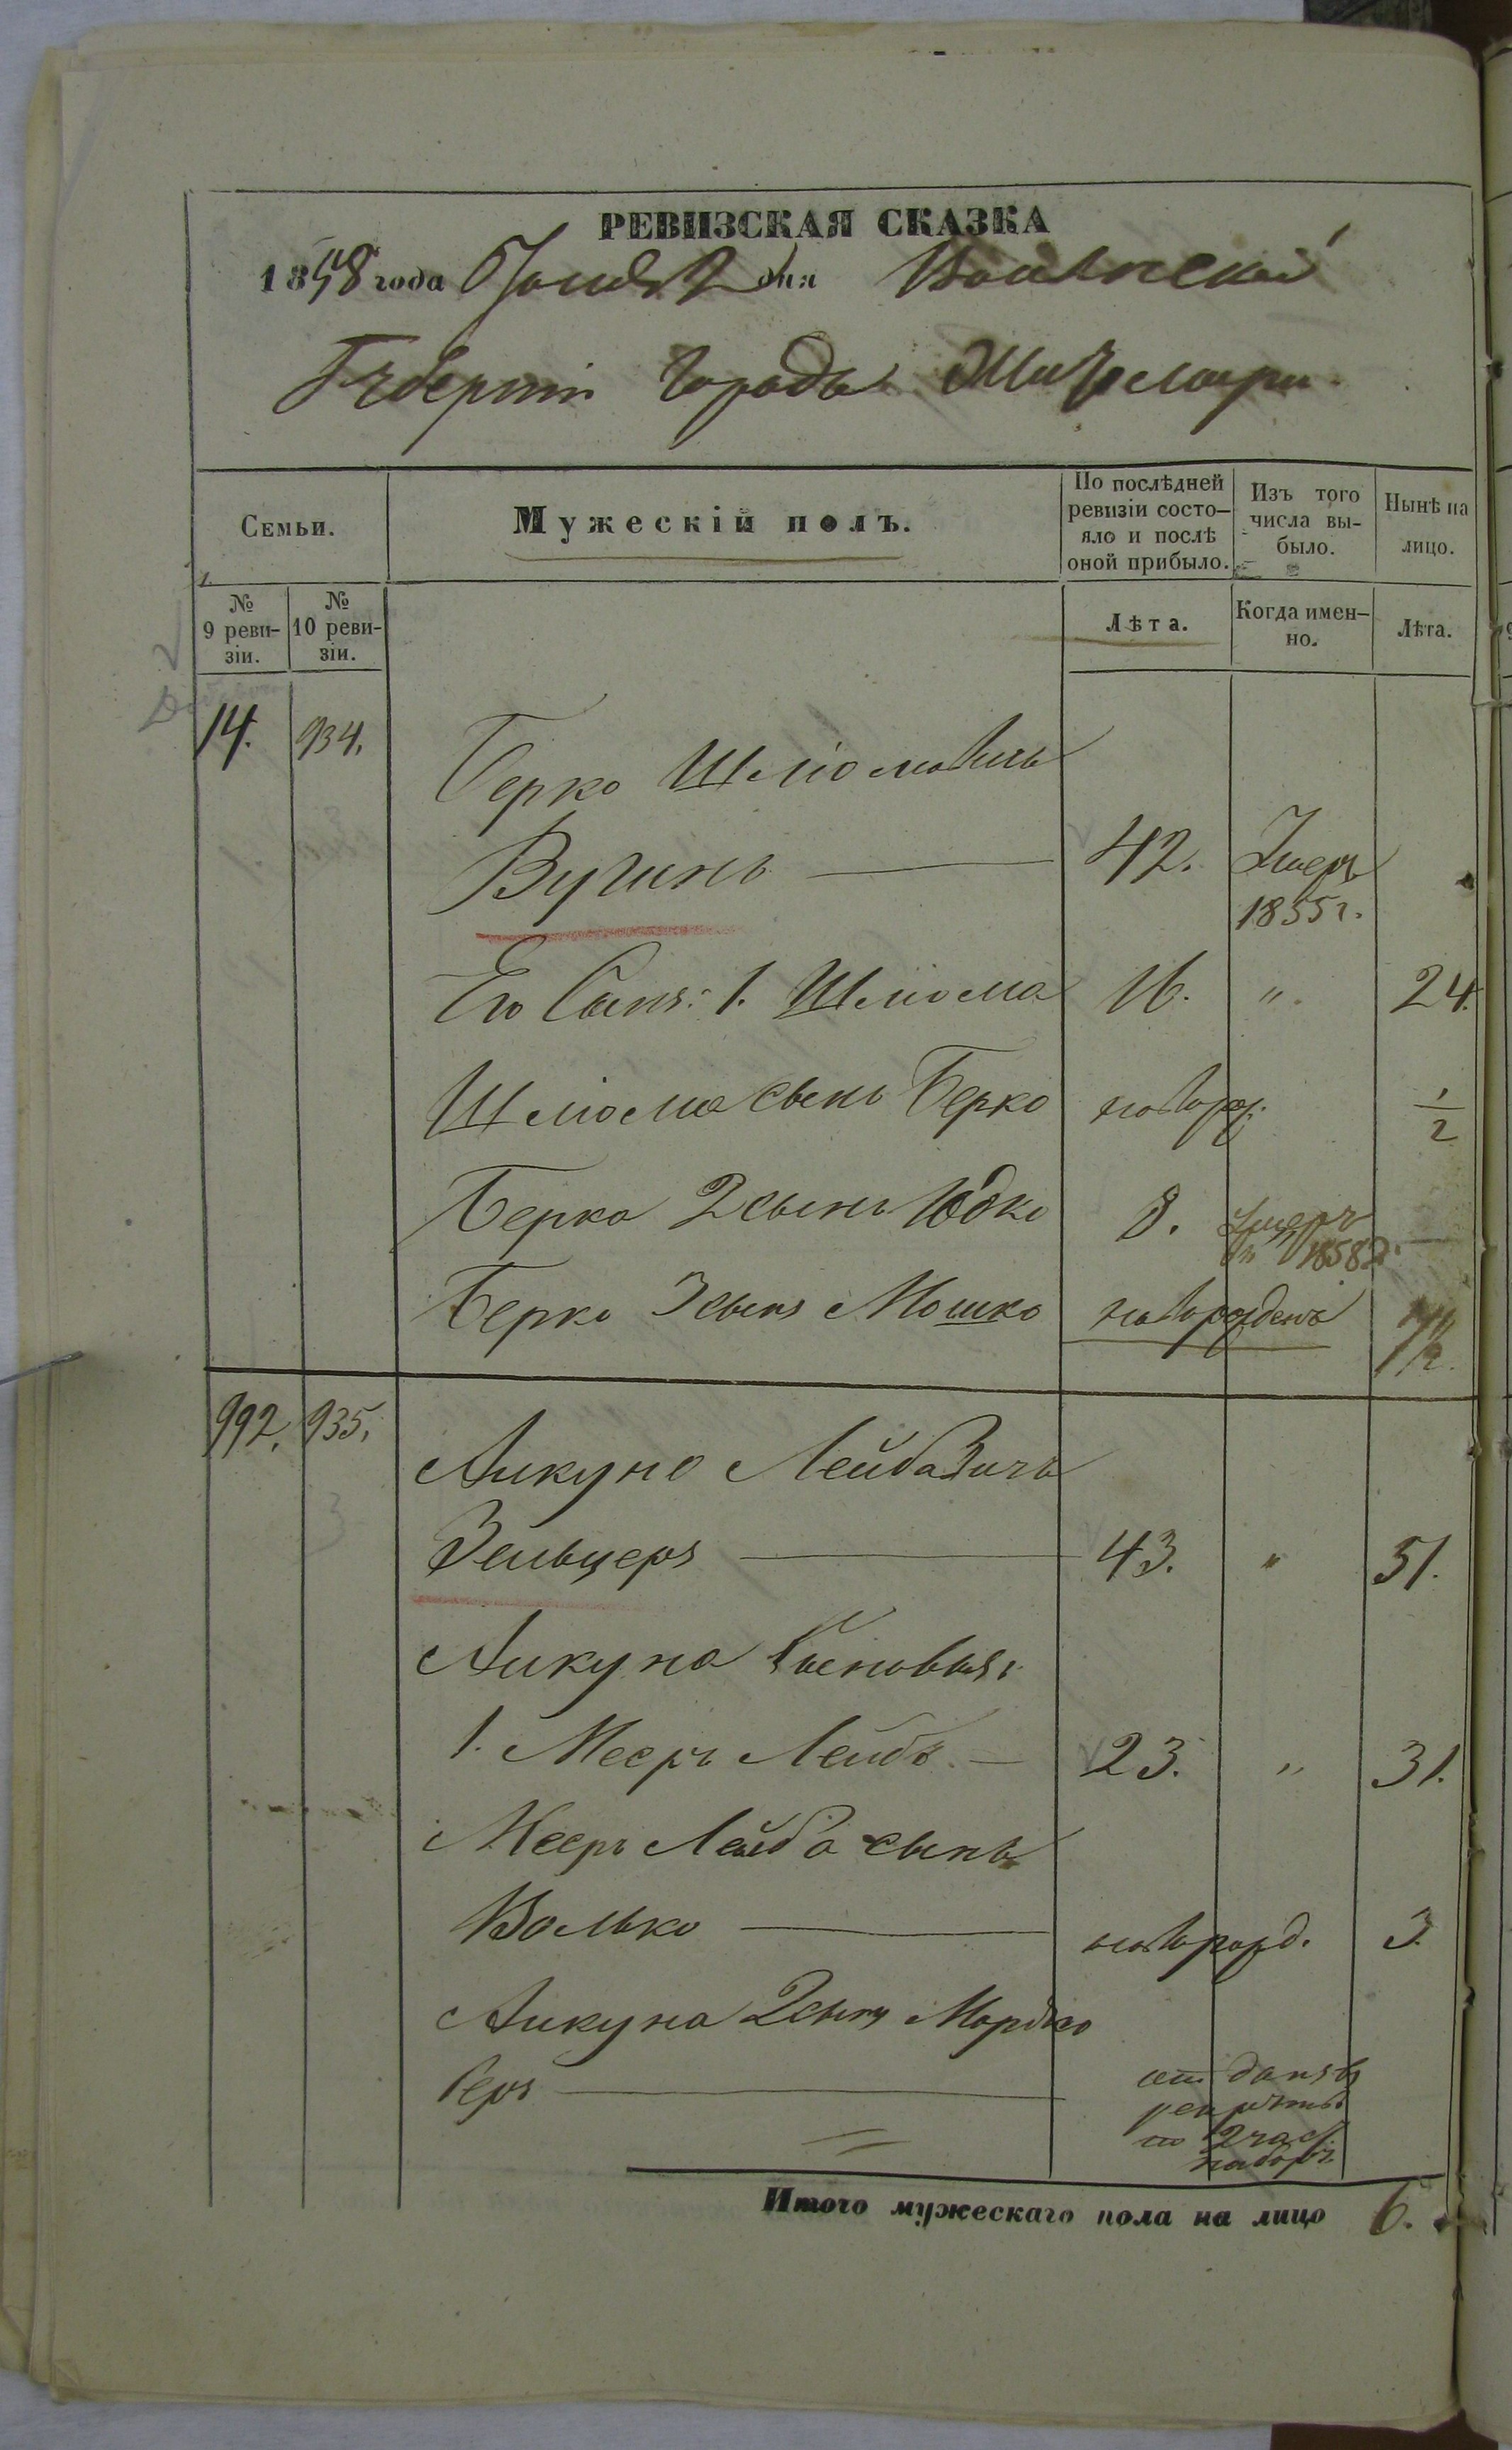 РЕВИЗСКАЯ СКАЗКА
1858 года дня Волынской
Губерніи Города Житомира.
Семьи.
Мужескій полъ.
По послѣдней ревизіи состо-
яло и послѣ
оной прибыло.
Изъ того
числа вы-
было.
Нынѣ на
лицо.
№
9 реви-
зіи.
№
10 реви-
зіи.
Лѣта.
Когда имен-
но.
Лѣта.
14. 934.
Берко Шліомовичъ
Вугинъ 42. Умеръ
1855 г.
Его Сынъ: 1. Шліома 16. " 24.
Шліома сынъ Берко новорож. 1/2
Берка 2 сынъ Юдко 8. Умеръ
въ 1858 г.
Берка 3 сынъ Мошко новорожденъ 1/2.
992. 935.
Аикуно Лейбовичъ
Зельцеръ 43. " 51.
Аикуна Сыновья:
1. Мееръ Лейба 23. " 31.
Мееръ Лейба сынъ
Волько новорожд. 3
Аикуна 2 сынъ Мордко
Беръ отданъ въ
рекруты
по 2 част.
наборъ.
Итого мужескаго пола на лицо 6.